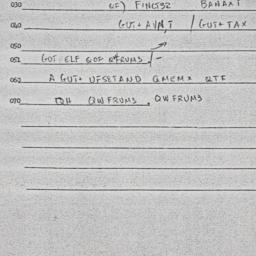 030 OF) FINCT32 BANAXT
040 GUT+ AVN,T / GUT+ TAX
050
051 GOT ELF QOF Q4RUMS -
052 A GUT+ UFSETAND QMEMX QTF
070 QH QWFRUMS, QWFRUMS